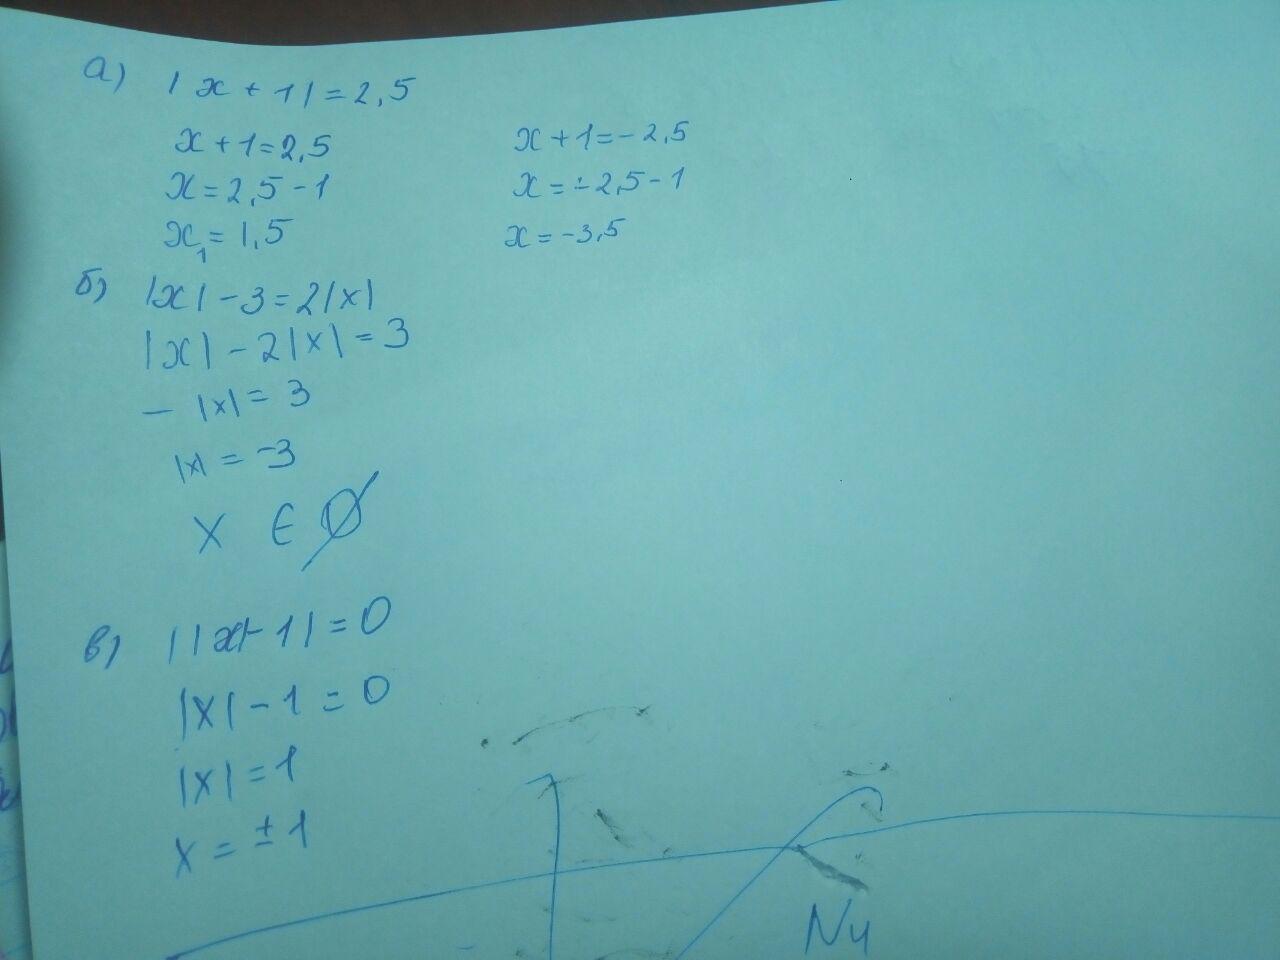 а) |x + 1| = 2,5
x + 1 = 2,5
x + 1 = - 2,5
x = 2,5 - 1
x = - 2,5 - 1
x₁ = 1,5
x = -3,5
б) |x| - 3 = 2|x|
|x| - 2|x| = 3
- |x| = 3
|x| = -3
x ∈ ∅
в) ||x| - 1| = 0
|x| - 1 = 0
|x| = 1
x = ± 1
N4